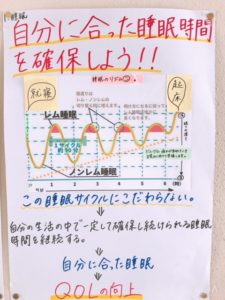 睡眠
自分に合った睡眠時間
を確保しよう!!
睡眠のリズム
就寝
起床
レム睡眠
1サイクル
約90分
ノンレム睡眠
1
2
3
4
5
6
この睡眠サイクルにこだわらない。
自分の生活の中で一定して確保し続けられる睡眠
時間を継続する。
自分に合った睡眠
QOLの向上